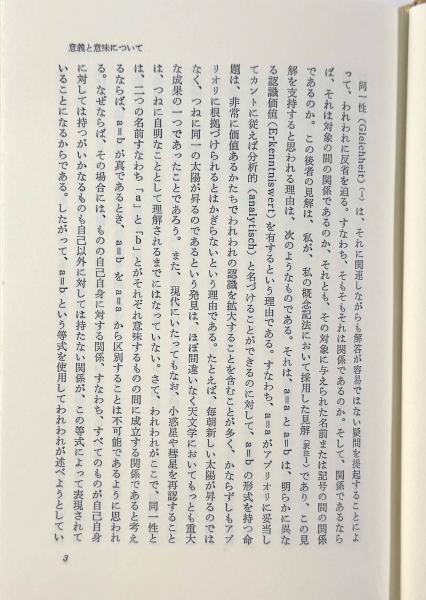 意義と意味について
同一性(Gleichheit)(1)は、それに関連しながらも解答が容易ではない疑問を提起することによ
って、われわれに反省を迫る。すなわち、そもそもそれは関係であるのか。そして、関係であるなら
ば、それは対象の間の関係であるのか、それとも、その対象に与えられた名前または記号の間の関係
であるのか。この後者の見解は、私が、私の概念記法において採用した見解(訳註1)であり、この見
解を支持すると思われる理由は、次のようなものである。それは、a＝aとa＝bは、明らかに異な
る認識価値(Erkenntniswert)を有するという理由である。すなわち、a＝aがアプリオリに妥当し
てカントに従えば分析的(analytisch)と名づけることができるのに対して、a＝bの形式を持つ命
題は、非常に価値あるかたちでわれわれの認識を拡大することを含むことが多く、かならずしもアプ
リオリに根拠づけられるとはかぎらないという理由である。たとえば、毎朝新しい太陽が昇るのでは
なく、つねに同一の太陽が昇るのであるという発見は、ほぼ間違いなく天文学においてもっとも重大
な成果の一つであったことであろう。また、現代にいたってもなお、小惑星や彗星を再認すること
は、つねに自明なこととして理解されるまでにはなっていない。さて、われわれがここで、同一性と
は、二つの名前すなわち「a」と「b」とがそれぞれ意味するものの間に成立する関係であると考え
るならば、a＝bが真であるとき、a＝bをa＝aから区別することは不可能であるように思われ
る。なぜならば、その場合には、ものの自己自身に対する関係、すなわち、すべてのものが自己自身
に対しては持つがいかなるものも自己以外に対しては持たない関係が、この等式によって表現されて
いることになるからである。したがって、a＝bという等式を使用してわれわれが述べようとしてい
3